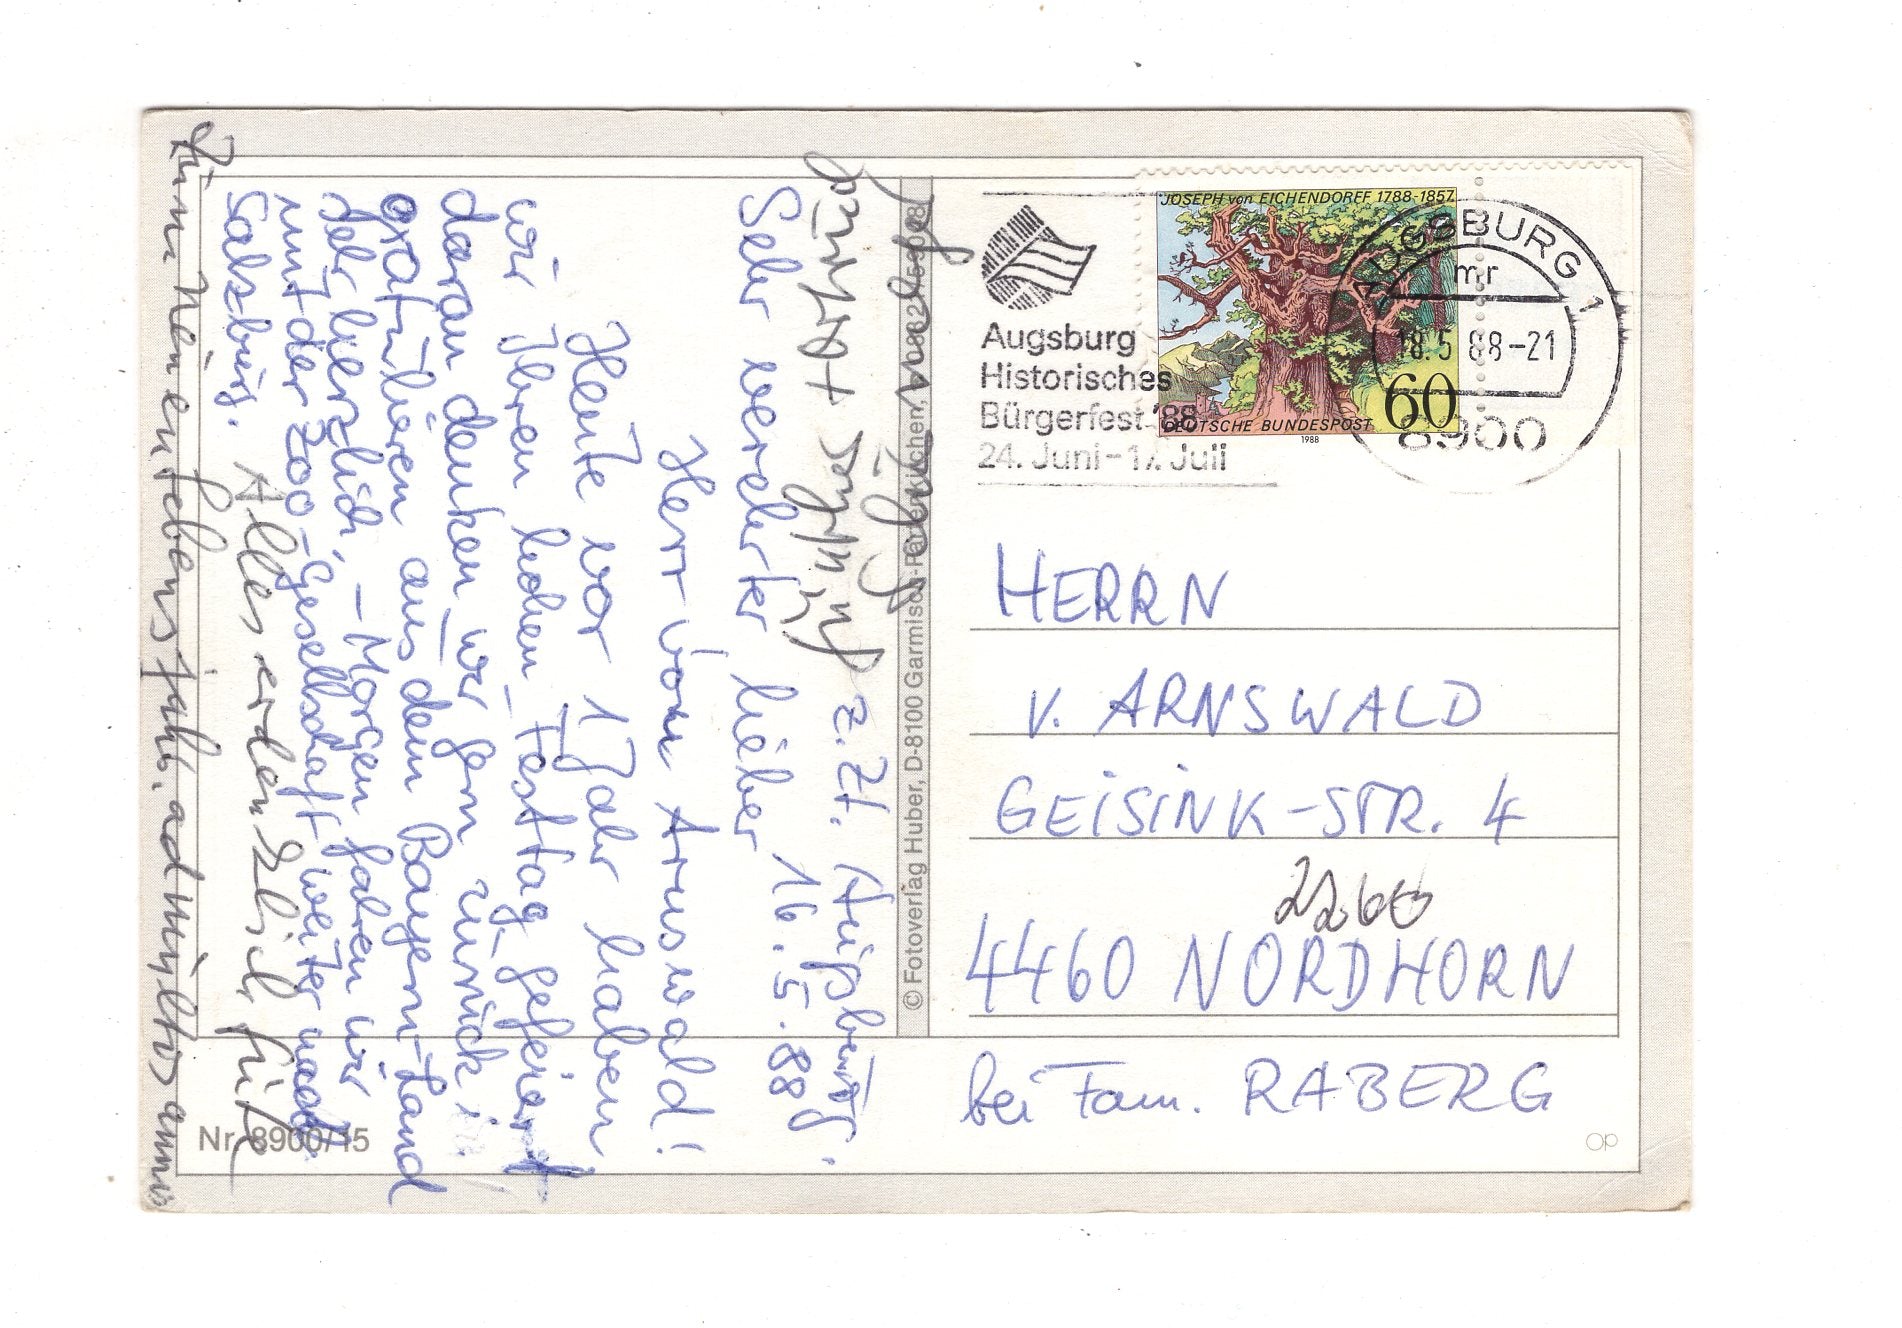 z.Zt. Augsburg,
16.5.88
Sehr verehrter lieber
Herr von Arnswald!
Heute vor 1 Jahr haben
wir Ihren hohen Festtag gefeiert
daran denken wir gern zurück;
gratulieren aus dem Bayern-Land
sehr herzlich, – Morgen fahren wir
mit der Zoo-Gesellschaft weiter nach
Salzburg.
Alles erdenklich Gute
zum neuen Lebensjahr, ad multos annos
Augsburg
Historisches
Bürgerfest '88
24. Juni–17. Juli
JOSEPH von EICHENDORFF 1788-1857
60
DEUTSCHE BUNDESPOST
1988
AUGSBURG 1
mr
18.5.88-21
8900
HERRN
v. ARNSWALD
GEISINK-STR. 4
2260
4460 NORDHORN
bei Fam. RABERG
© Fotoverlag Huber, D-8100 Garmisch-Partenkirchen,
Nr. 8900/15